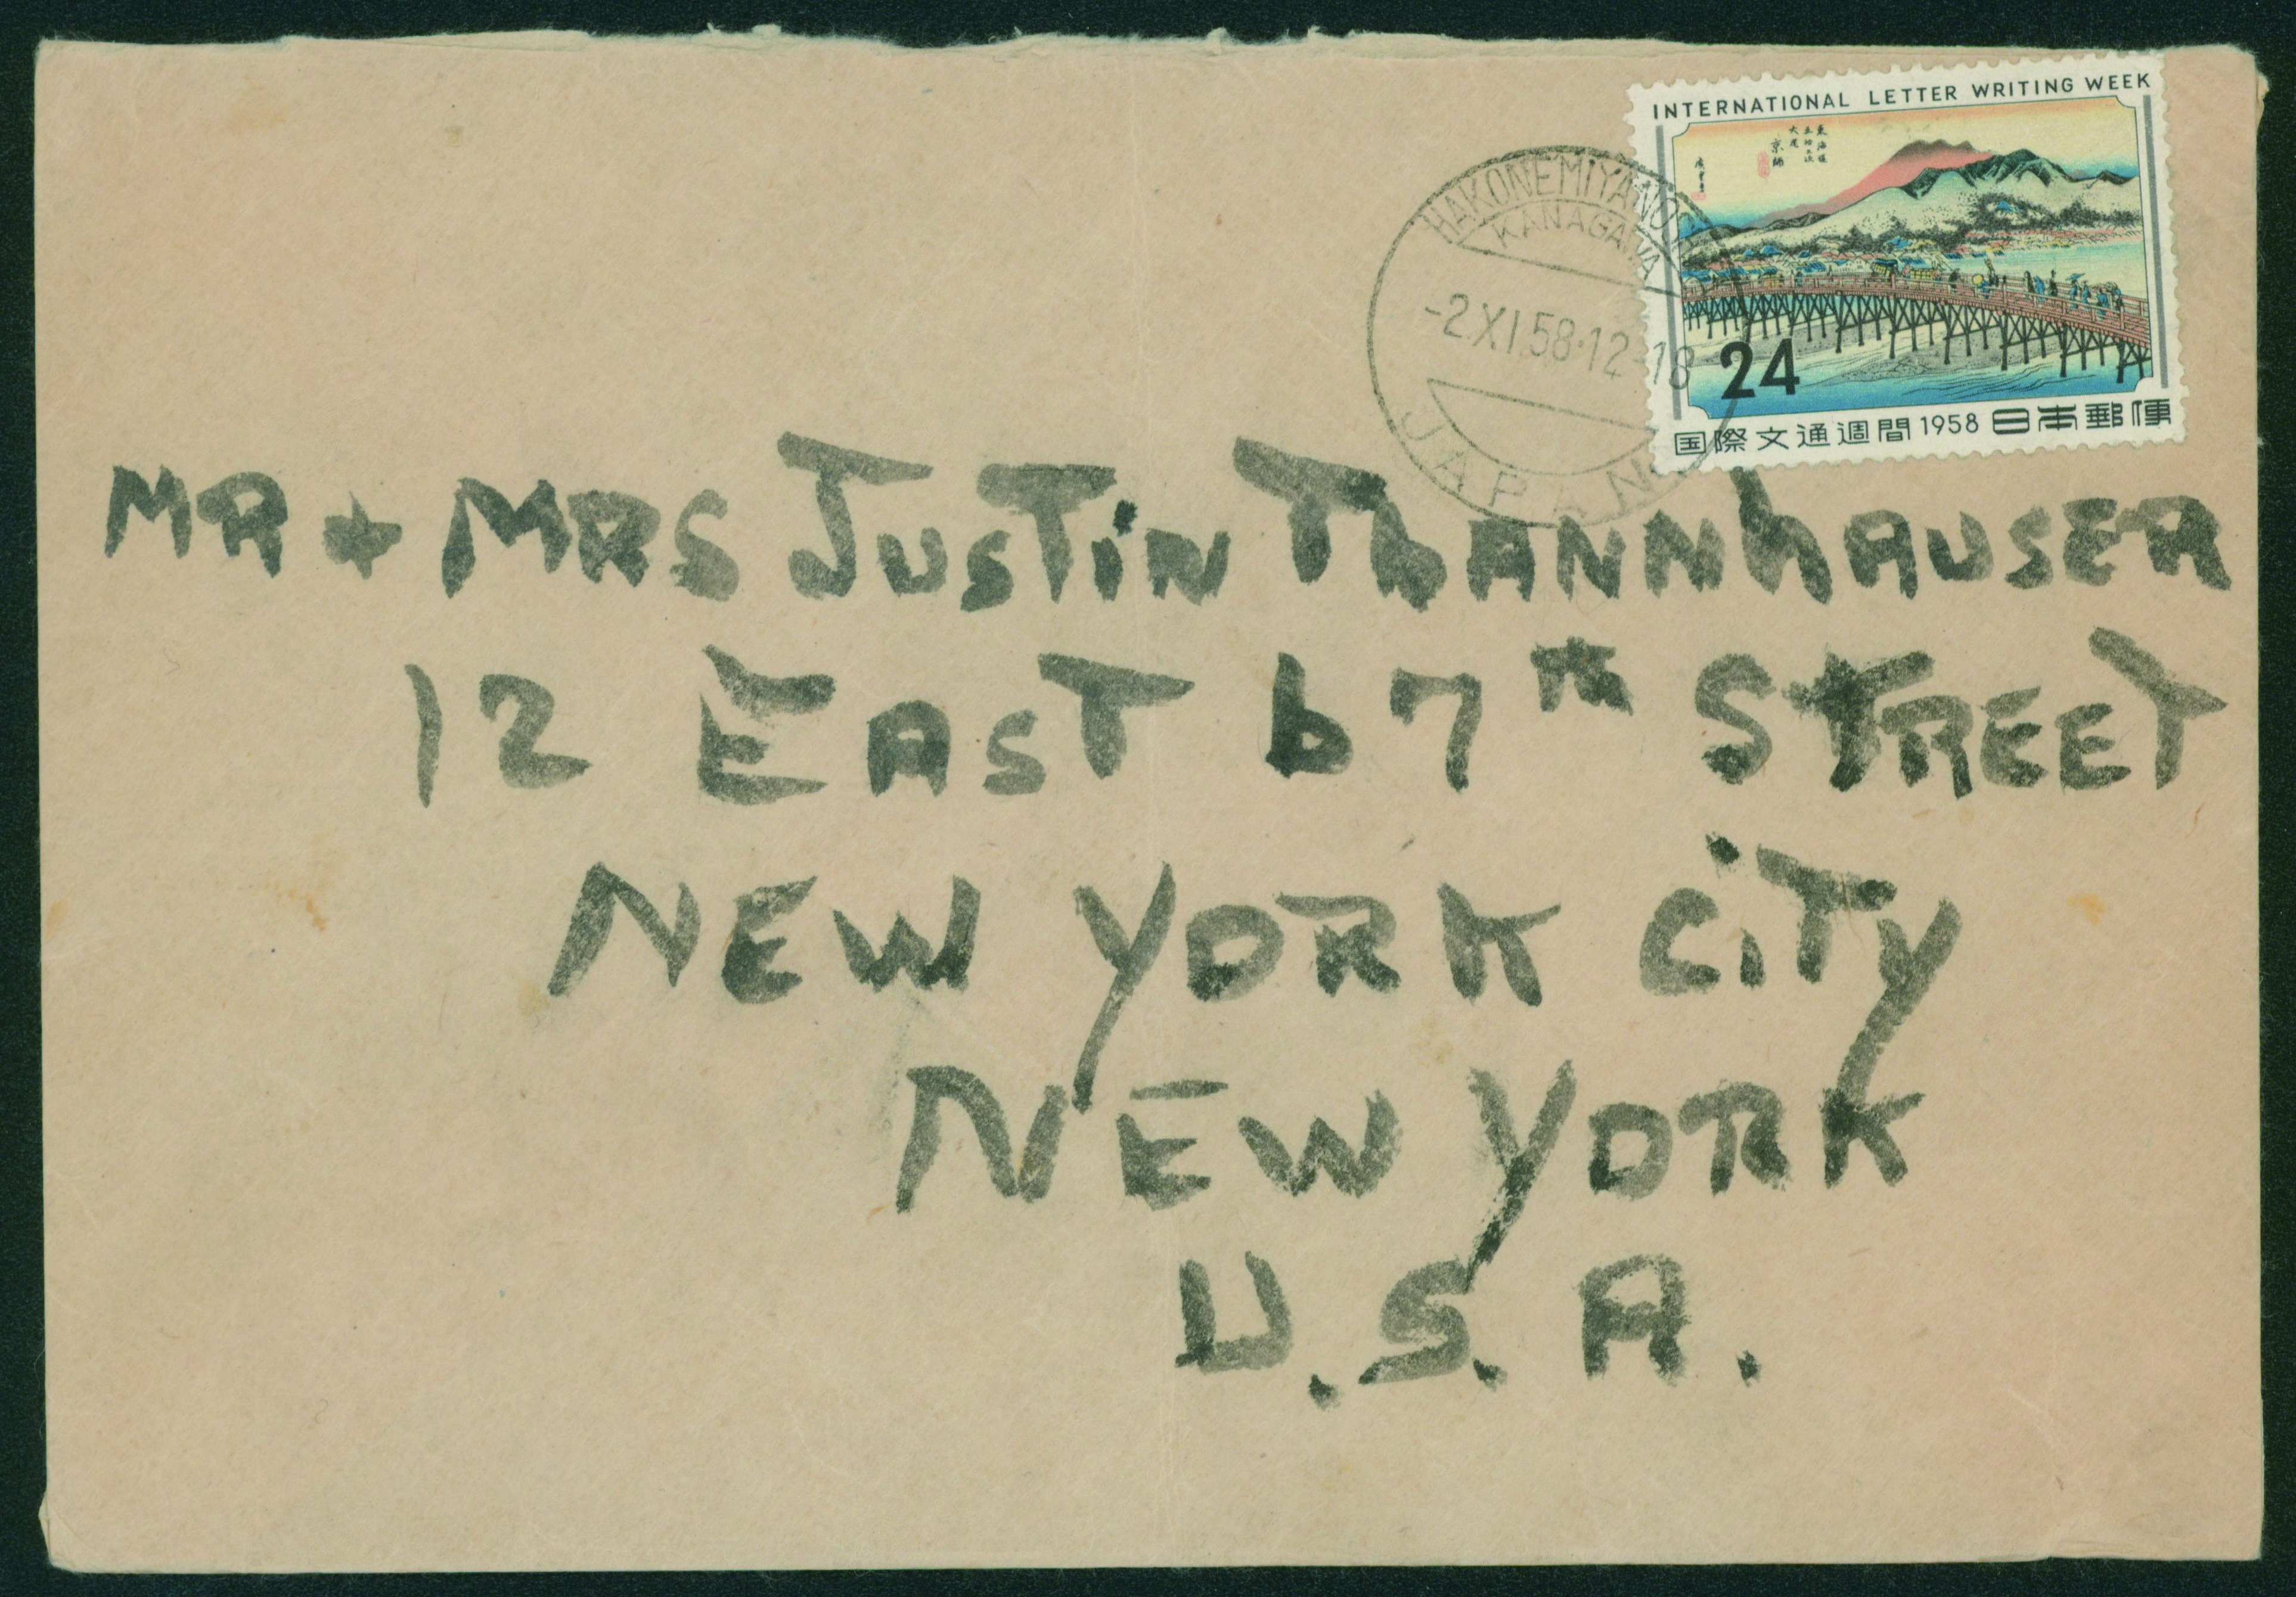 INTERNATIONAL LETTER WRITING WEEK
東海道
五拾三次
大尾
京師
24
国際文通週間 1958 日本郵便
KANAGAWA
-2.XI.58·12-18
JAPAN
MR + MRS JUSTiN ThANNhAUSER
12 EAST 67th STREET
NEW YORK CiTy
NEW YORK
U.S.A.